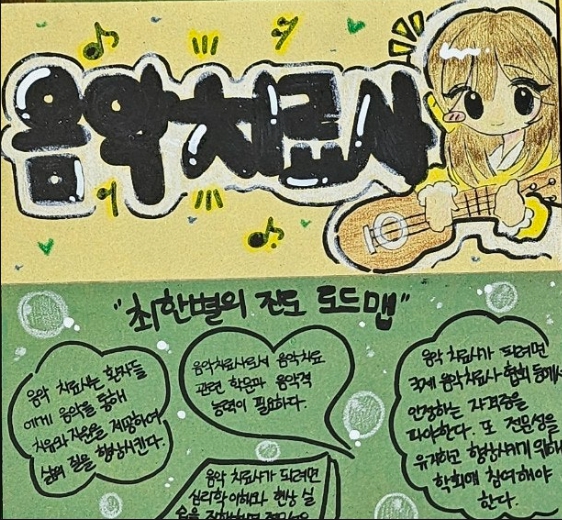 음악치료사
"최한별의 진로 로드맵"
음악 치료사는 환자들
에게 음악을 통해
치유와 지원을 제공하여
삶의 질을 향상시킨다.
음악치료사로서 음악치료
관련 학문과 음악적
능력이 필요하다.
음악 치료사가 되려면
국제 음악치료사 협회 등에서
인정하는 자격증을
따야한다. 또 전문성을
유지하고 향상시키기 위해
학회에 참여해야
한다.
음악 치료사가 되려면
심리학 이해와 현상 실